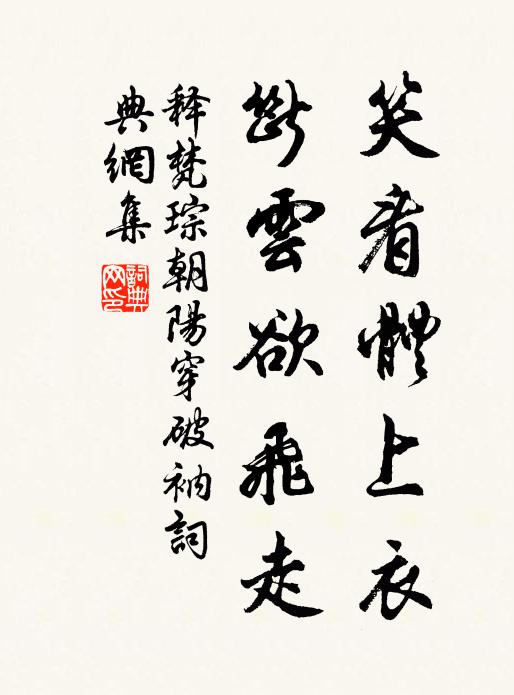 笑看體上衣
斷雲欲飛走
释梵琮朝陽穿破衲詞
典網集
詞典網印